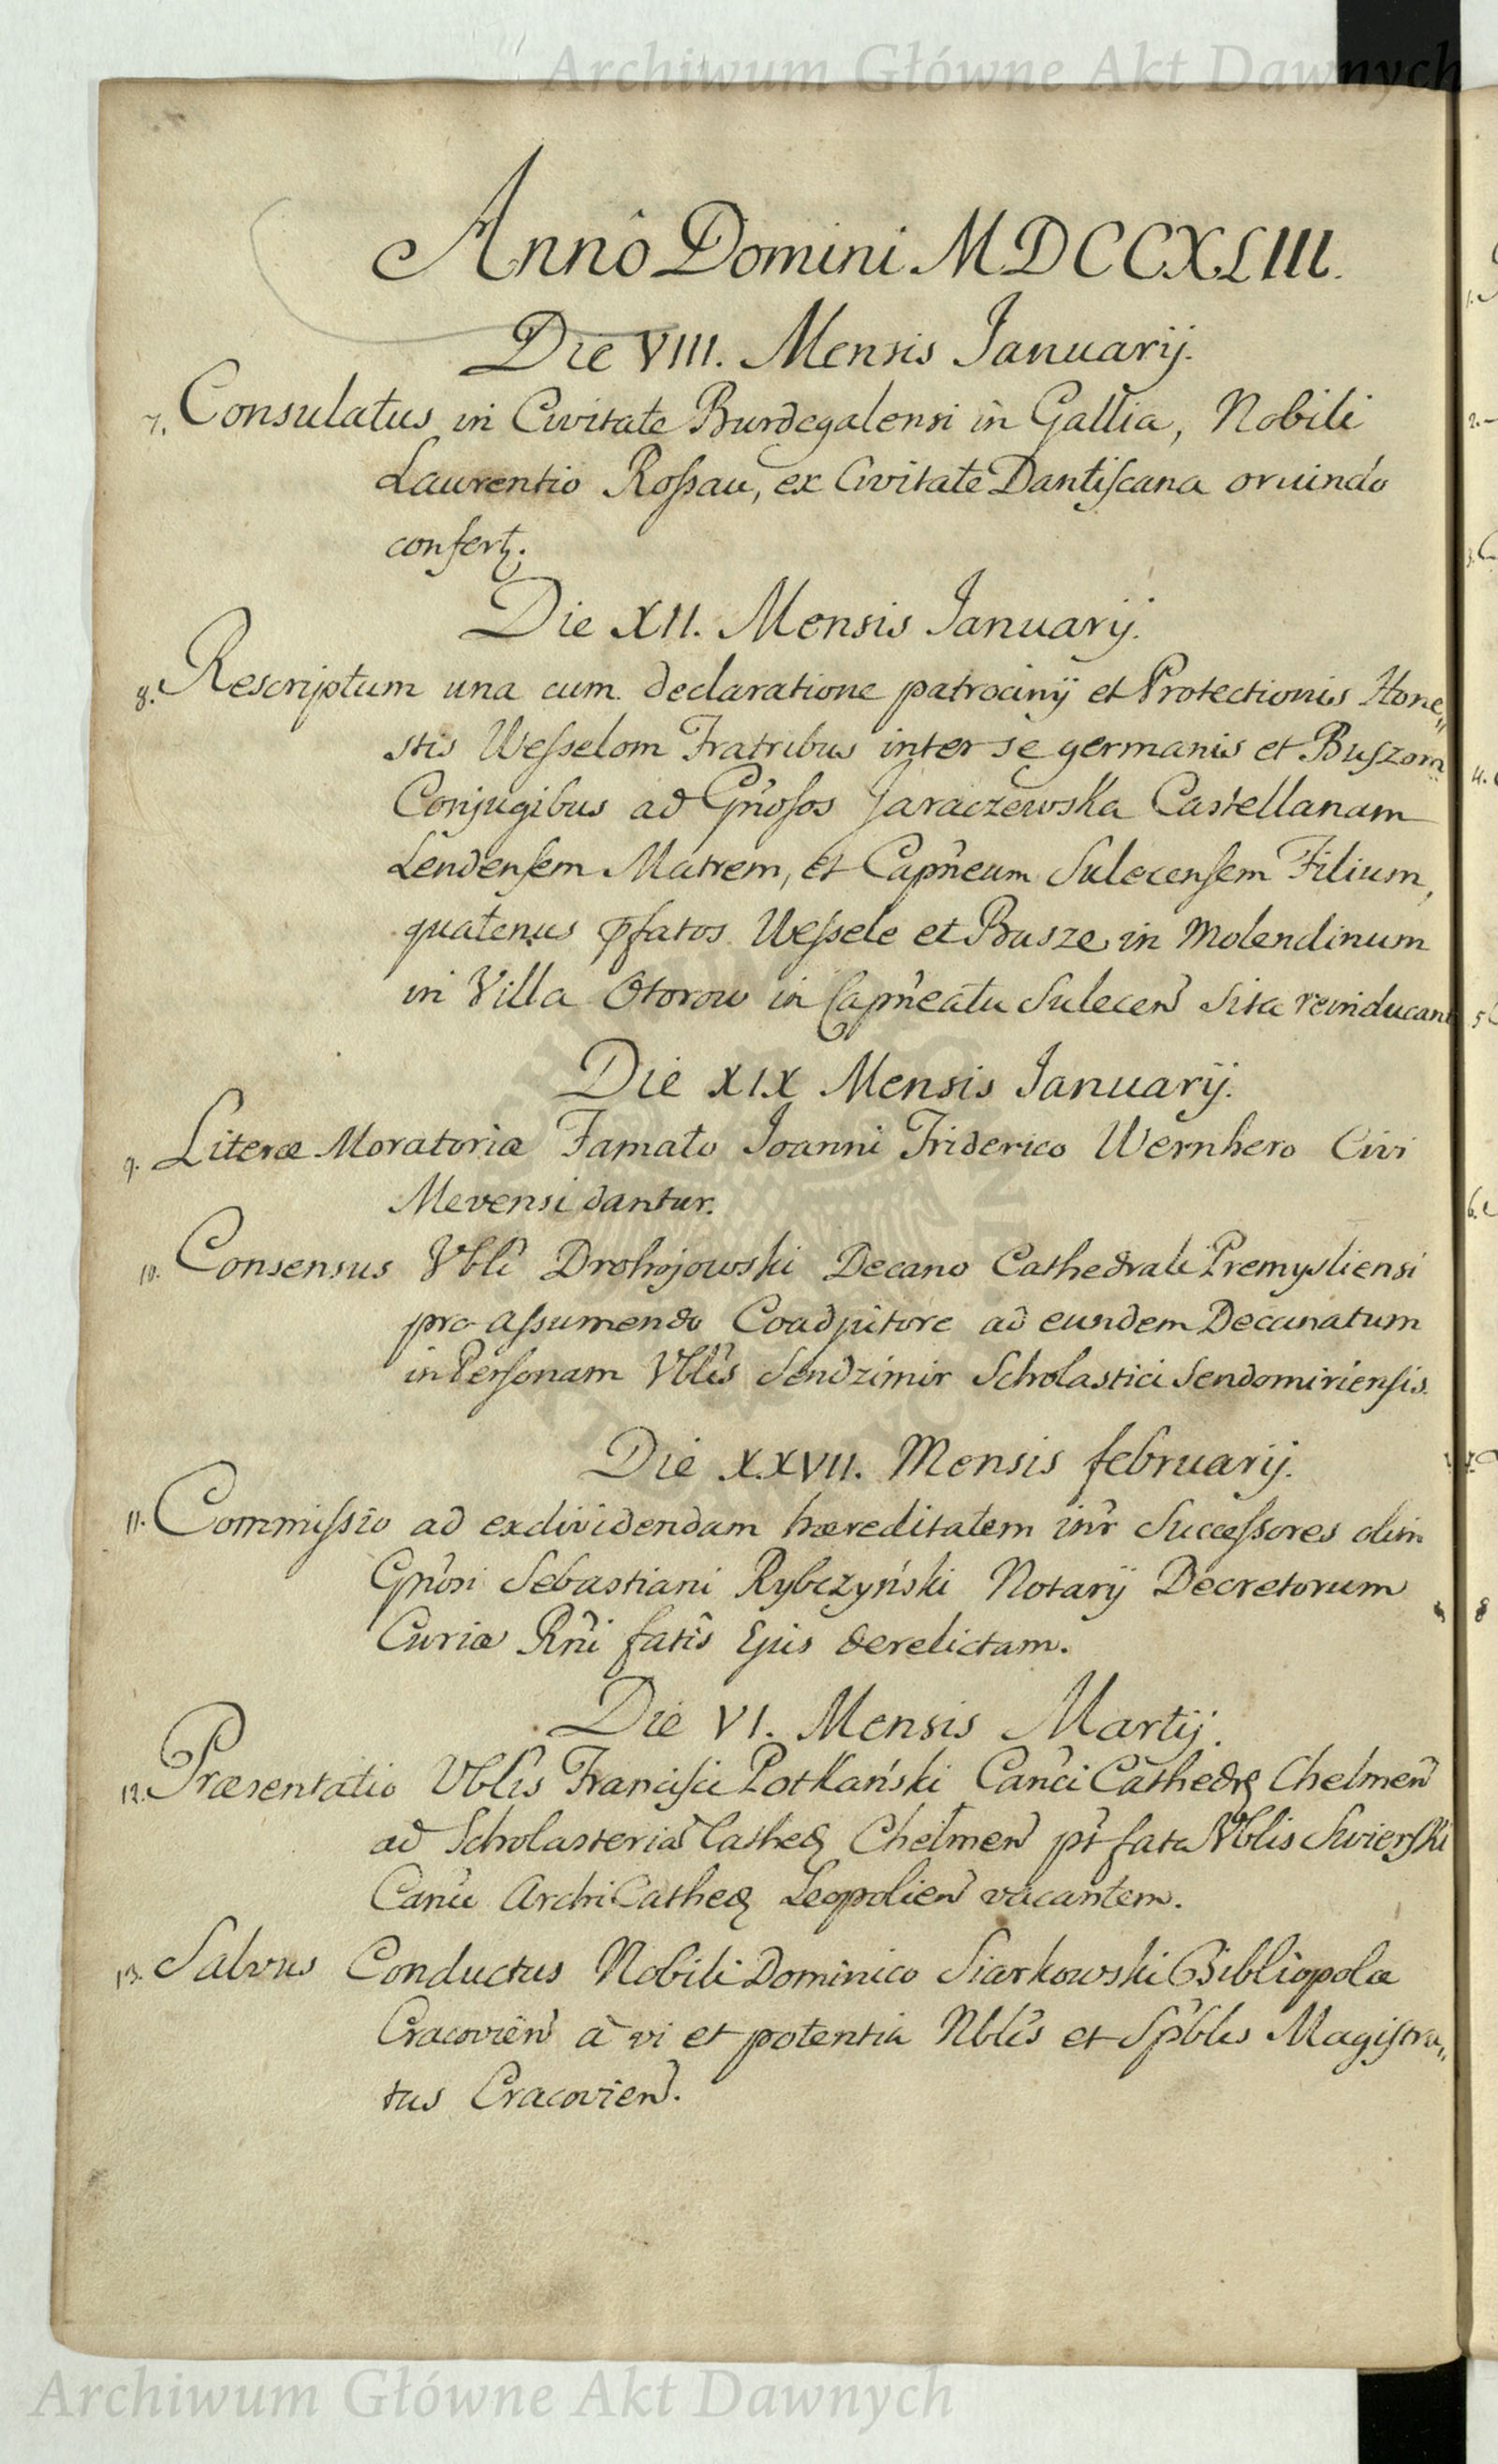 Archiwum Główne Akt Dawnych
Annô Domini MDCCXLIII.
Die VIII. Mensis Januarij.
7. Consulatus in Civitate Burdegalensi in Gallia, Nobili
Laurentio Roſsau, ex Civitate Dantiſcana oriundo
confertꝛ.
Die XII. Mensis Januarij.
8. Rescriptum una cum declaratione patrocinij et Protectionis Hone„
stis Weſselom Fratribus inter se germanis et Buſzom
Conjugibus ad Gn̄oſos Jaraczewska Castellanam
Lendenſem Matrem, et Capn̄eum Sulecenſem Filium,
quatenus p̄fatos Weſsele et Busze in Molendinum
in Villa Otorow in Capn̄eatu Sulecen̄ Sita reinducant
Die XIX Mensis Januarij.
9. Literæ Moratoriæ Famato Joanni Friderico Wernhero Civi
Mevensi dantur.
10. Consensus Vbli Drohojowski Decano Cathedrali Premysliensi
pro aſsumendo Coadjutore ad eundem Decanatum
in Perſonam Vblis Sendzimir Scholastici Sendomirienſis.
Die XXVII. Mensis februarij.
11. Commiſsio ad exdividendam hæreditatem int̄r Succeſsores olim
Gn̄osi Sebastiani Rybczyński Notarij Decretorum
Curiæ Rn̄i fatîs Ejus derelictam.
Die VI. Mensis Martij.
12. Præsentatio Vblis Franciſci Potkański Can̄ci Cathedꝝ Chelmen̄
ad Scholasteriā Cathedꝝ Chełmen̄ pt̄ fata Vblis Swierſki
Can̄ci ArchiCathedꝝ Leopolien̄ vacantem.
13. Salvus Conductus Nobili Dominico Siarkowski Bibliopolæ
Cracovien̄ à vi et potentia Nblis et Sp̄blis Magiſtra„
tus Cracovien̄.
Archiwum Główne Akt Dawnych